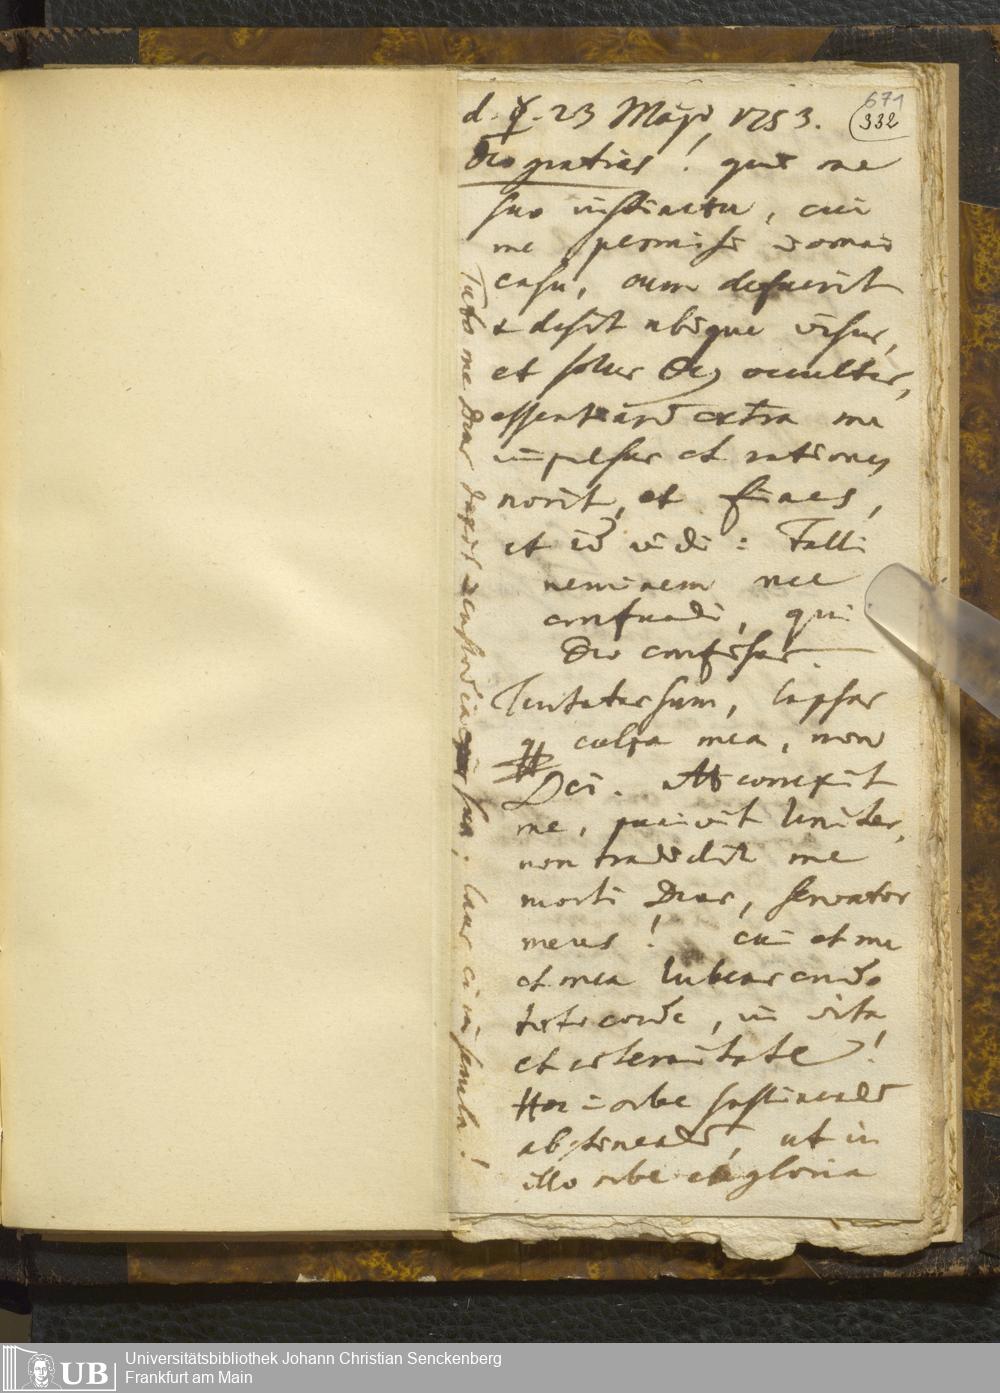 d. ☿. 23 Maji 1753.
671
332
Deo gratias! qui me
suo instinctu, cui
me permisi in omni
casu, cum deseruit
& desit ubique visus,
et solus Deus occultus,
extra me
impulsus et rationes
norit, et fines,
et vidi: Falli
neminem nec
confundi, qui
Deo confisus.
Tentatus sum, lapsus
culpa mea, non
Dei. At correxit
me, punivit leniter,
non tradidit me
morti Deus, servator
meus! cui et me
et mea lubens
toto corde, in vita
et aeternitate!
Hoc in orbe sustinendo
abstinendo, ut in
illo orbe gloria
Tuto me Deus custodia sua. laus ei in secula!
Universitätsbibliothek Johann Christian Senckenberg
Frankfurt am Main
UB